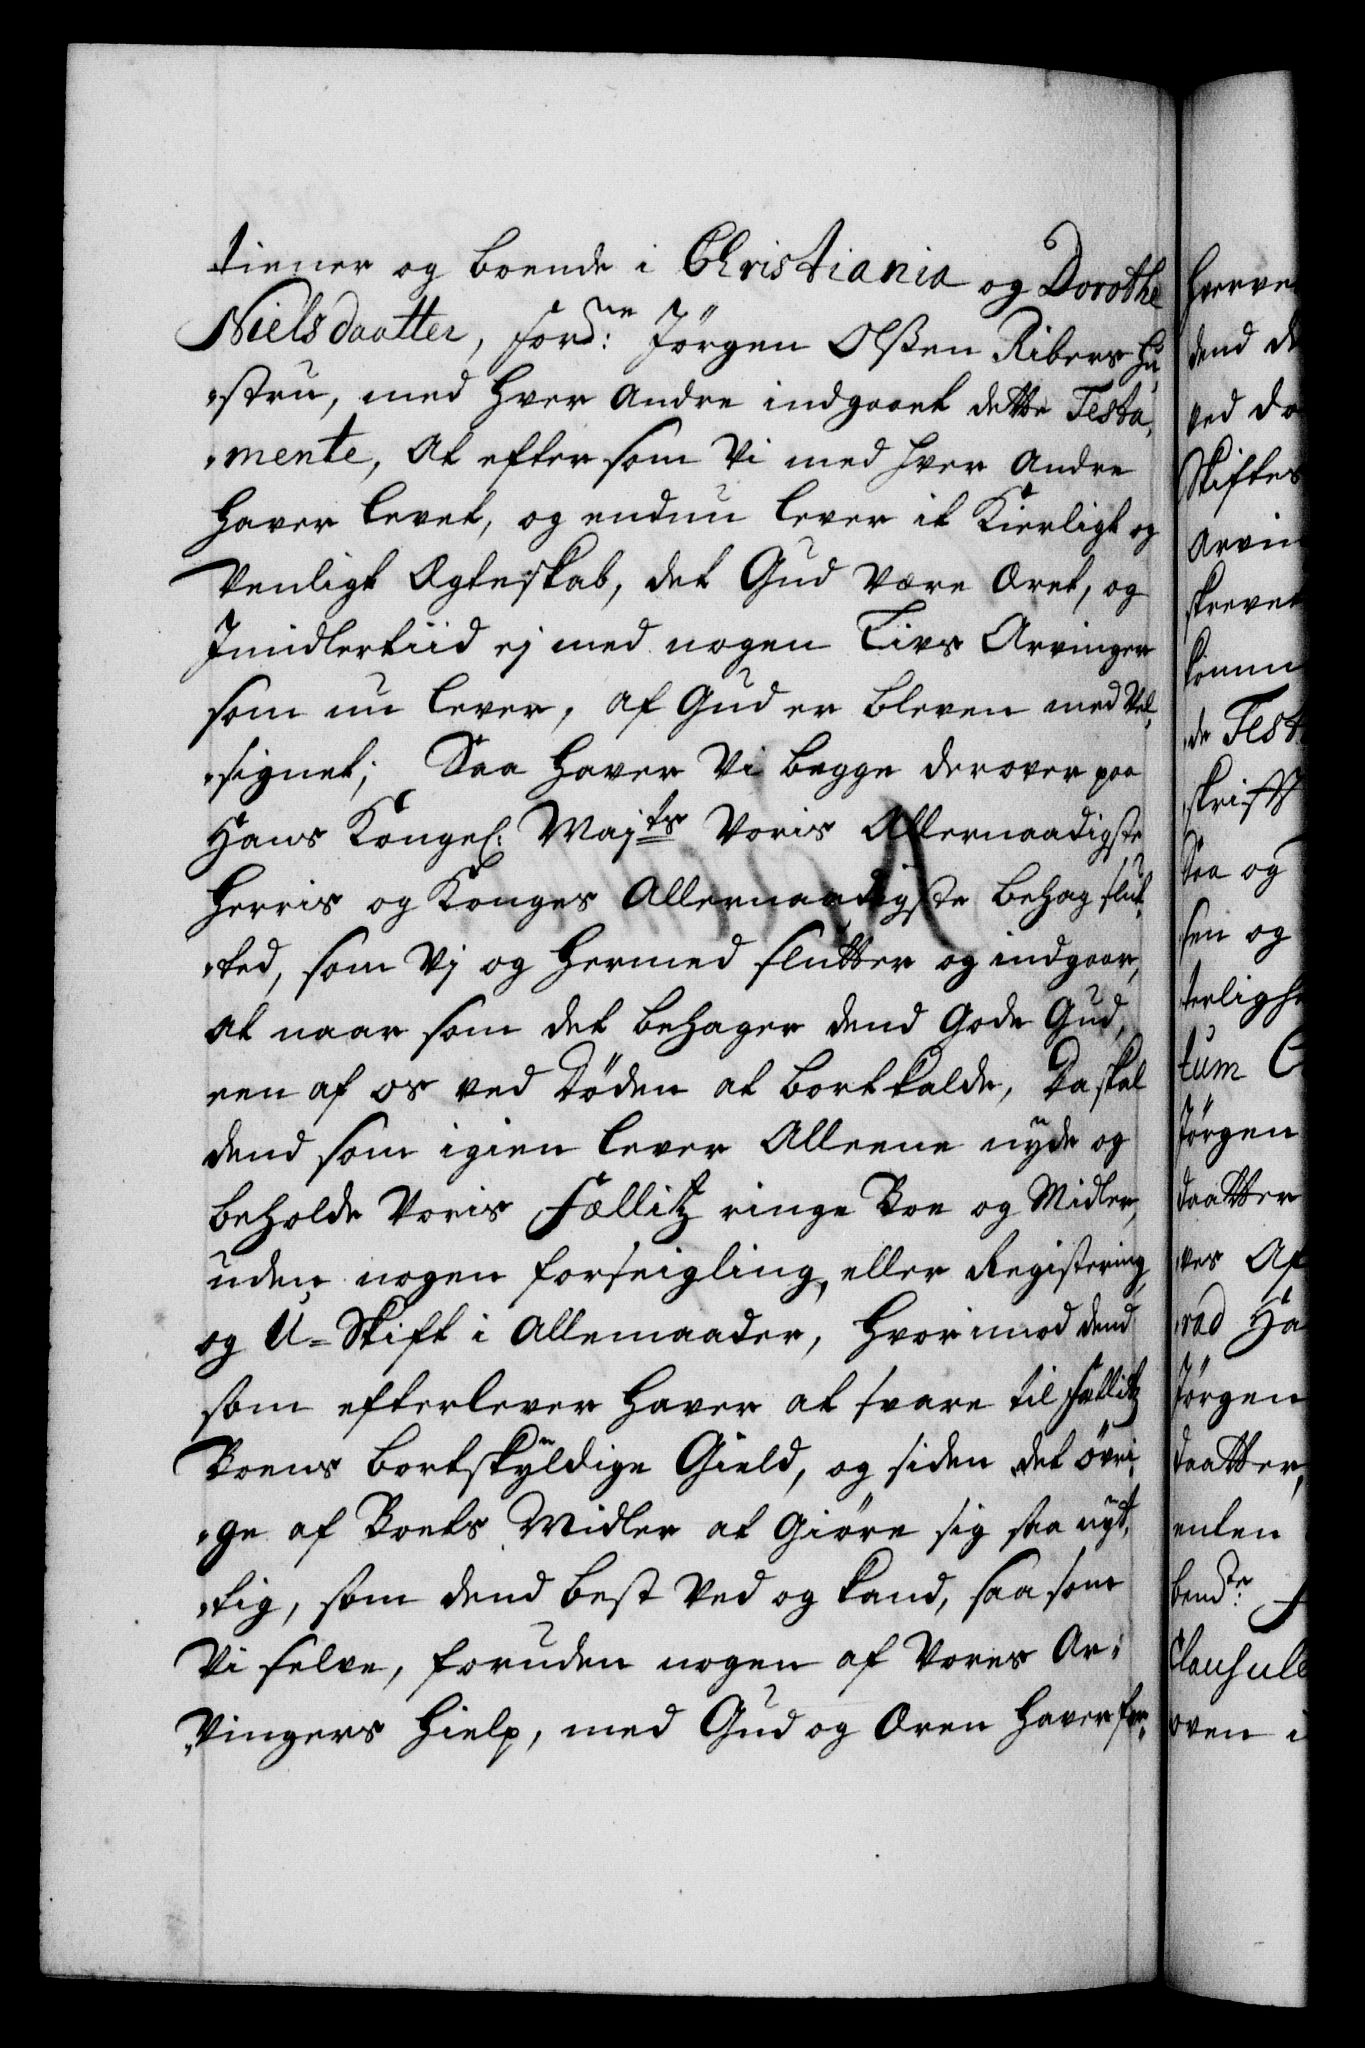 tiener og boende i Christiania og Dorothe
Nielsdaatter, for{dne}: Jörgen Olßen Ribers Hu„
„stru, med hver andre indgaaet dette Testa„
„mente, At eftersom Vi med hver andre
haver levet, og endnu lever it Kierligt og
Venligt Ægteskab, det Gud være Æret, og
Imidlertiid ej med nogen Livs Arvinger
som nu lever, af Gud er bleven med Vel„
„signet; Saa haver Vi begge derover paa
Hans Kongel: Majts Voris Allernaadigste
Herris og Konges Allernaadigste behag slut„
„ted, som Vj og hermed slutter og indgaar,
at naar som det behager dend Gode Gud,
een af os ved Döden at bortkalde, Da skal
dend som igien lever Alleene nyde og
beholde Voris Fællitz ringe Boe og Midler,
uden nogen forseigling, eller Registering,
og U-Skift i Allemaader, hvorimod dend
som efterlever haver at svare til Fællitz
Boens bortskyldige Gield, og siden det övri„
„ge af Boets Midler at Giöre sig saa nyt„
„tig, som dend best Ved og kand, saa som
Vi selve, foruden nogen af Vores Ar„
„Vingers Hielp, med Gud og Æren haver for„